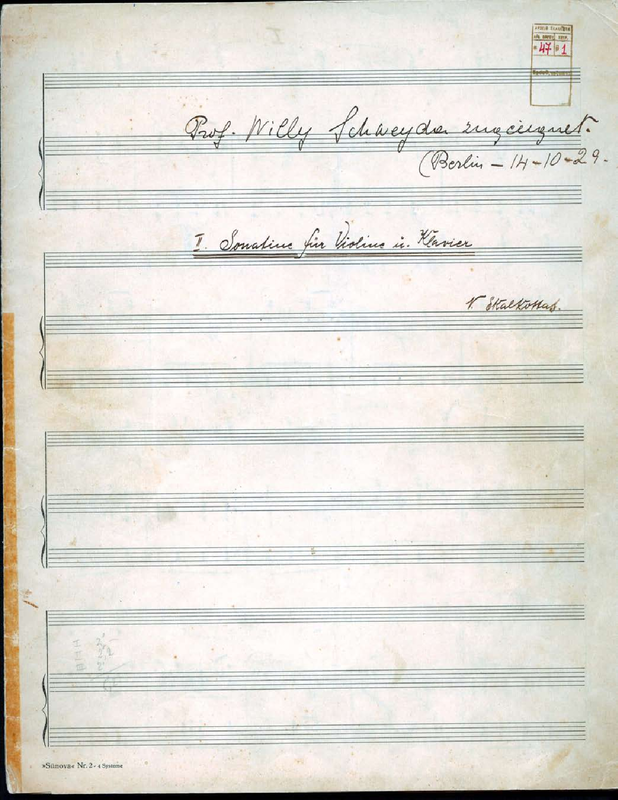 47 1
Prof. Willy Schweyda zugeeignet.
(Berlin – 14-10-29.
II. Sonatine für Violine u. Klavier
N. Skalkottas.
»Sünova« Nr. 2 - 4 Systeme